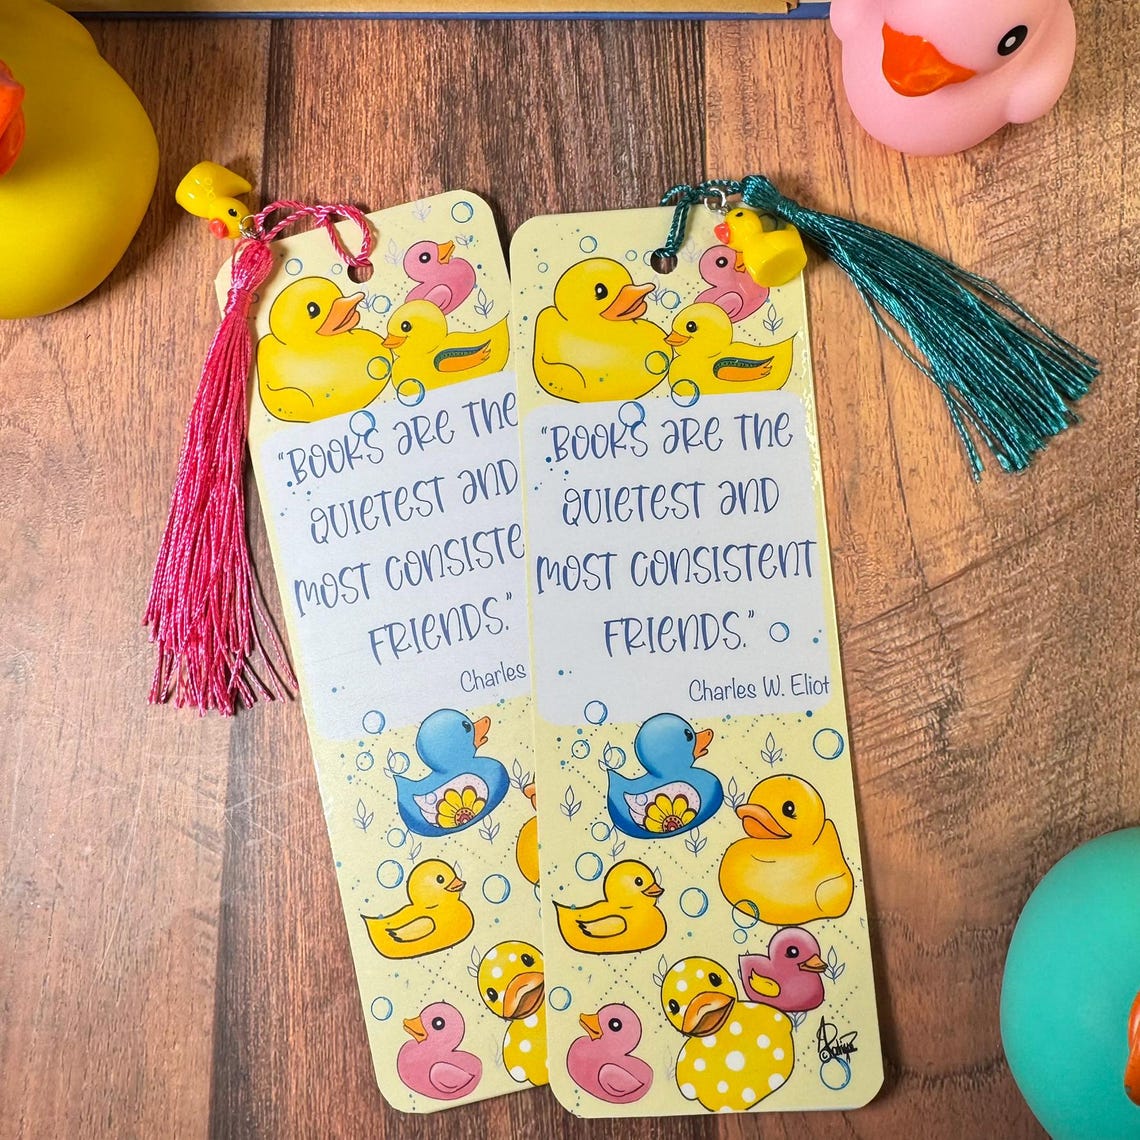 “BOOKS ARE THE
QUIETEST AND
MOST CONSISTE
FRIENDS.”
Charles
“BOOKS ARE THE
QUIETEST AND
MOST CONSISTENT
FRIENDS.”
Charles W. Eliot